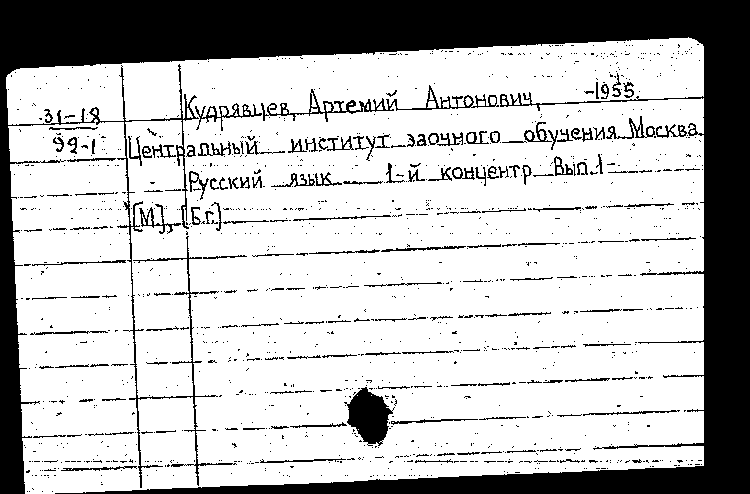 31-18
99-1
Кудрявцев, Артемий Антонович, -1955.
Центральный институт заочного обучения. Москва.
Русский язык 1-й концентр. Вып.1-
[М.], [Б.г.]